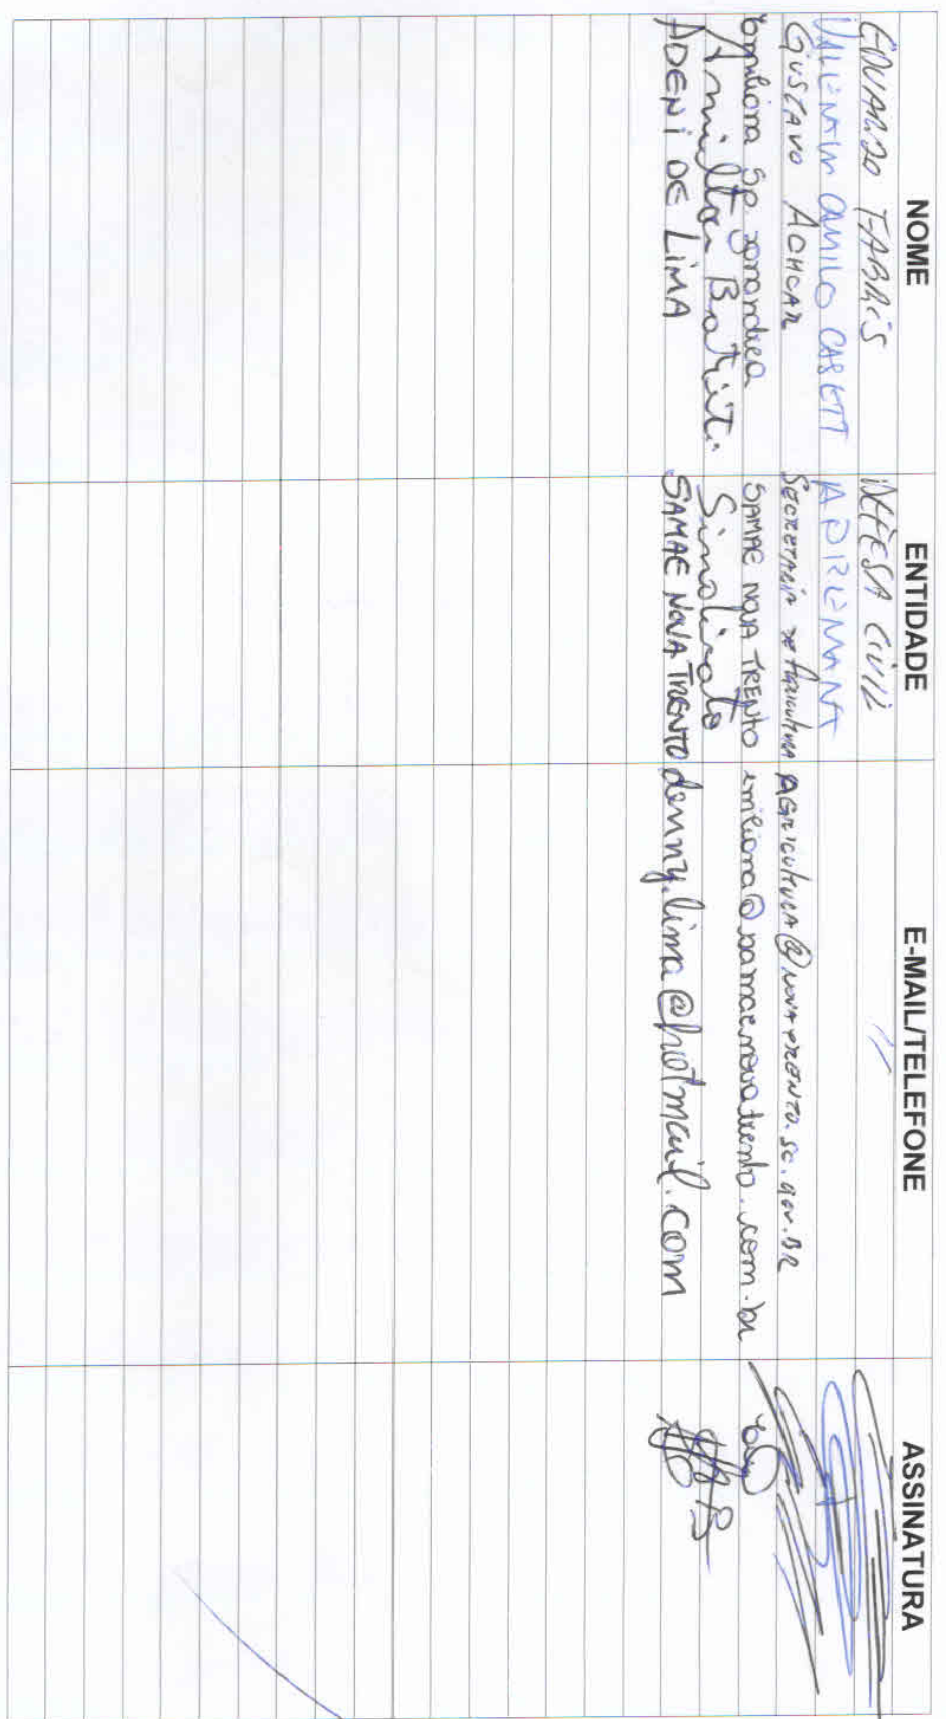 NOME ENTIDADE E-MAIL/TELEFONE ASSINATURA
EDUARDO FABRIS DEFESA CIVIL
CAMILO ADREMANT
GUSTAVO ACHCAR SECRETARIA DE AGRICULTURA AGRICULTURA@NOVATRENTO.SC.GOV.BR
Emiliana Sp. SAMAE NOVA TRENTO emiliana@samaenovatrento.com.br
Amilton Sindicato
ADENI DE LIMA SAMAE NOVA TRENTO denny.lima@hotmail.com